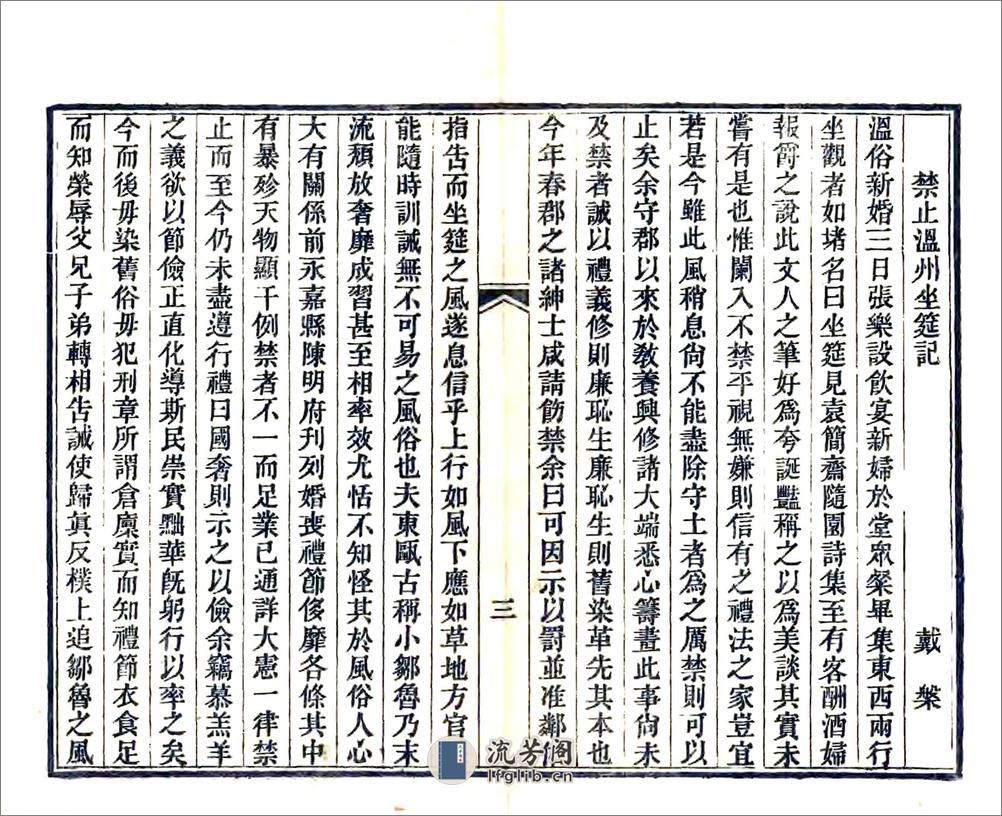 禁止溫州坐筵記
戴槃
溫俗新婚三日張樂設飲宴新婦於堂眾粲畢集東西兩行
坐觀者如堵名曰坐筵見袁簡齋隨園詩集至有客酬酒婦
報爵之說此文人之筆好為夸誕豔稱之以為美談其實未
嘗有是也惟闌入不禁平視無嫌則信有之禮法之家豈宜
若是今雖此風稍息尚不能盡除守土者為之厲禁則可以
止矣余守郡以來於敎養興修諸大端悉心籌畫此事尚未
及禁者誠以禮義修則廉恥生廉恥生則舊染革先其本也
今年春郡之諸紳士咸請飭禁余曰可因示以罰並准鄰
三
指吿而坐筵之風遂息信乎上行如風下應如草地方官
能隨時訓誡無不可易之風俗也夫東甌古稱小鄒魯乃末
流頹放奢靡成習甚至相率效尤恬不知怪其於風俗人心
大有關係前永嘉縣陳明府刋列婚喪禮節侈靡各條其中
有暴殄天物顯干例禁者不一而足業已通詳大憲一律禁
止而至今仍未盡遵行禮曰國奢則示之以儉余竊慕羔羊
之義欲以節儉正直化導斯民崇實黜華旣躬行以率之矣
今而後毋染舊俗毋犯刑章所謂倉廩實而知禮節衣食足
而知榮辱父兄子弟轉相吿誡使歸眞反樸上追鄒魯之風
流芳阁
lfglib.cn